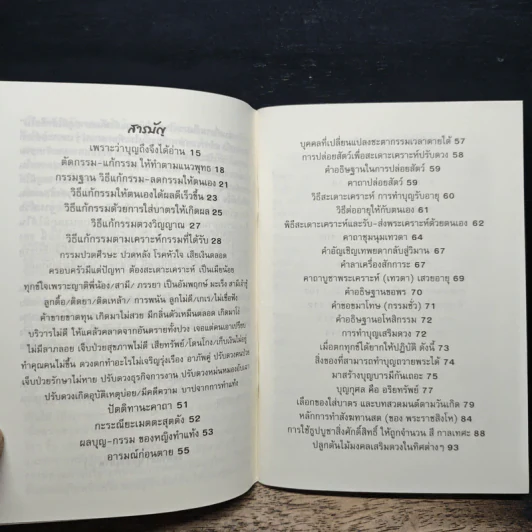 สารบัญ
เพราะว่าบุญถึงจึงได้อ่าน 15
ตัดกรรม-แก้กรรม ให้ทำตามแนวพุทธ 18
กรรมฐาน วิธีแก้กรรม-ลดกรรมให้ตนเอง 21
วิธีแก้กรรมให้ตนเองได้ผลดีเร็วขึ้น 23
วิธีแก้กรรมด้วยการใส่บาตรให้เกิดผล 25
วิธีแก้กรรมดวงวิญญาณ 27
วิธีแก้กรรมตามเคราะห์กรรมที่ได้รับ 28
กรรมปวดศีรษะ ปวดหลัง โรคหัวใจ เสียเงินตลอด
ครอบครัวมีแต่ปัญหา ต้องสะเดาะเคราะห์ เป็นเมียน้อย
ทุกข์ใจเพราะญาติพี่น้อง/สามี /ภรรยา เป็นอัมพฤกษ์ มะเร็ง สามีเจ้าชู้
ลูกดื้อ/ติดยา/ติดเหล้า/ การพนัน ลูกไม่ดี/เกเร/ไม่เชื่อฟัง
ค้าขายขาดทุน เกิดมาไม่สวย มีกลิ่นตัวเหม็นตลอด เกิดมาไร้
บริวารไม่ดี ให้แคล้วคลาดจากอันตรายทั้งปวง เจอแต่คนเอาเปรียบ
ไม่มีลาภลอย เจ็บป่วยสุขภาพไม่ดี เสียทรัพย์/โดนโกง/เก็บเงินไม่อยู่
ทำคุณคนไม่ขึ้น ดวงตกทำอะไรไม่เจริญรุ่งเรือง อาภัพคู่ ปรับดวงคนป่วย
เจ็บป่วยรักษาไม่หาย ปรับดวงธุรกิจการงาน ปรับดวงหม่นหมองอับเฉา
ปรับดวงเกิดอุบัติเหตุบ่อย/มีคดีความ บาปจากการทำแท้ง
ปัตติทานะคาถา 51
กะระณียะเมตตะสุตตัง 52
ผลบุญ-กรรม ของหญิงทำแท้ง 53
อารมณ์ก่อนตาย 55
บุคคลที่เปลี่ยนแปลงชะตากรรมเวลาตายได้ 57
การปล่อยสัตว์เพื่อสะเดาะเคราะห์ปรับดวง 58
คำอธิษฐานในการปล่อยสัตว์ 59
คาถาปล่อยสัตว์ 59
วิธีสะเดาะเคราะห์ การทำบุญรับอายุ 60
วิธีต่ออายุให้กับตนเอง 61
พิธีสะเดาะเคราะห์และรับ-ส่งพระเคราะห์ด้วยตนเอง 62
คาถาชุมนุมเทวดา 64
คำอัญเชิญเทพยดากลับสู่วิมาน 67
คำลาเครื่องสักการะ 67
คาถาบูชาพระเคราะห์ (เทวดา) เสวยอายุ 68
คำอธิษฐานขอพร 70
คำขอขมาโทษ (กรรมชั่ว) 71
คำอธิษฐานอโหสิกรรม 71
การทำบุญเสริมดวง 72
เมื่อตกทุกข์ได้ยากให้ปฏิบัติ ดังนี้ 73
สิ่งของที่สามารถทำบุญถวายพระได้ 74
มาสร้างบุญบารมีกันเถอะ 75
บุญกุศล คือ อริยทรัพย์ 77
เลือกของใส่บาตร และบทสวดมนต์ตามวันเกิด 79
หลักการทำสังฆทานสด (ของ พระราชสิงโห) 84
การใช้ธูปบูชาสิ่งศักดิ์สิทธิ์ ให้ถูกจำนวน สี กาลเทศะ 88
ปลูกต้นไม้มงคลเสริมดวงในทิศต่างๆ 93